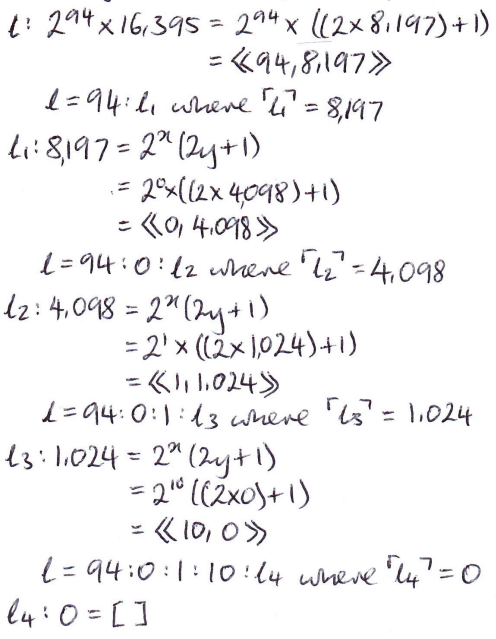 l: 2⁹⁴ × 16,395 = 2⁹⁴ × ((2×8,197)+1)
= ⟪94, 8,197⟫
l = 94 : l₁ where ⌜l₁⌝ = 8,197
l₁: 8,197 = 2ˣ(2y+1)
= 2⁰×((2×4,098)+1)
= ⟪0, 4,098⟫
l = 94 : 0 : l₂ where ⌜l₂⌝ = 4,098
l₂: 4,098 = 2ˣ(2y+1)
= 2¹ × ((2×1,024)+1)
= ⟪1, 1,024⟫
l = 94 : 0 : 1 : l₃ where ⌜l₃⌝ = 1,024
l₃: 1,024 = 2ˣ(2y+1)
= 2¹⁰ ((2×0)+1)
= ⟪10, 0⟫
l = 94 : 0 : 1 : 10 : l₄ where ⌜l₄⌝ = 0
l₄: 0 = [ ]